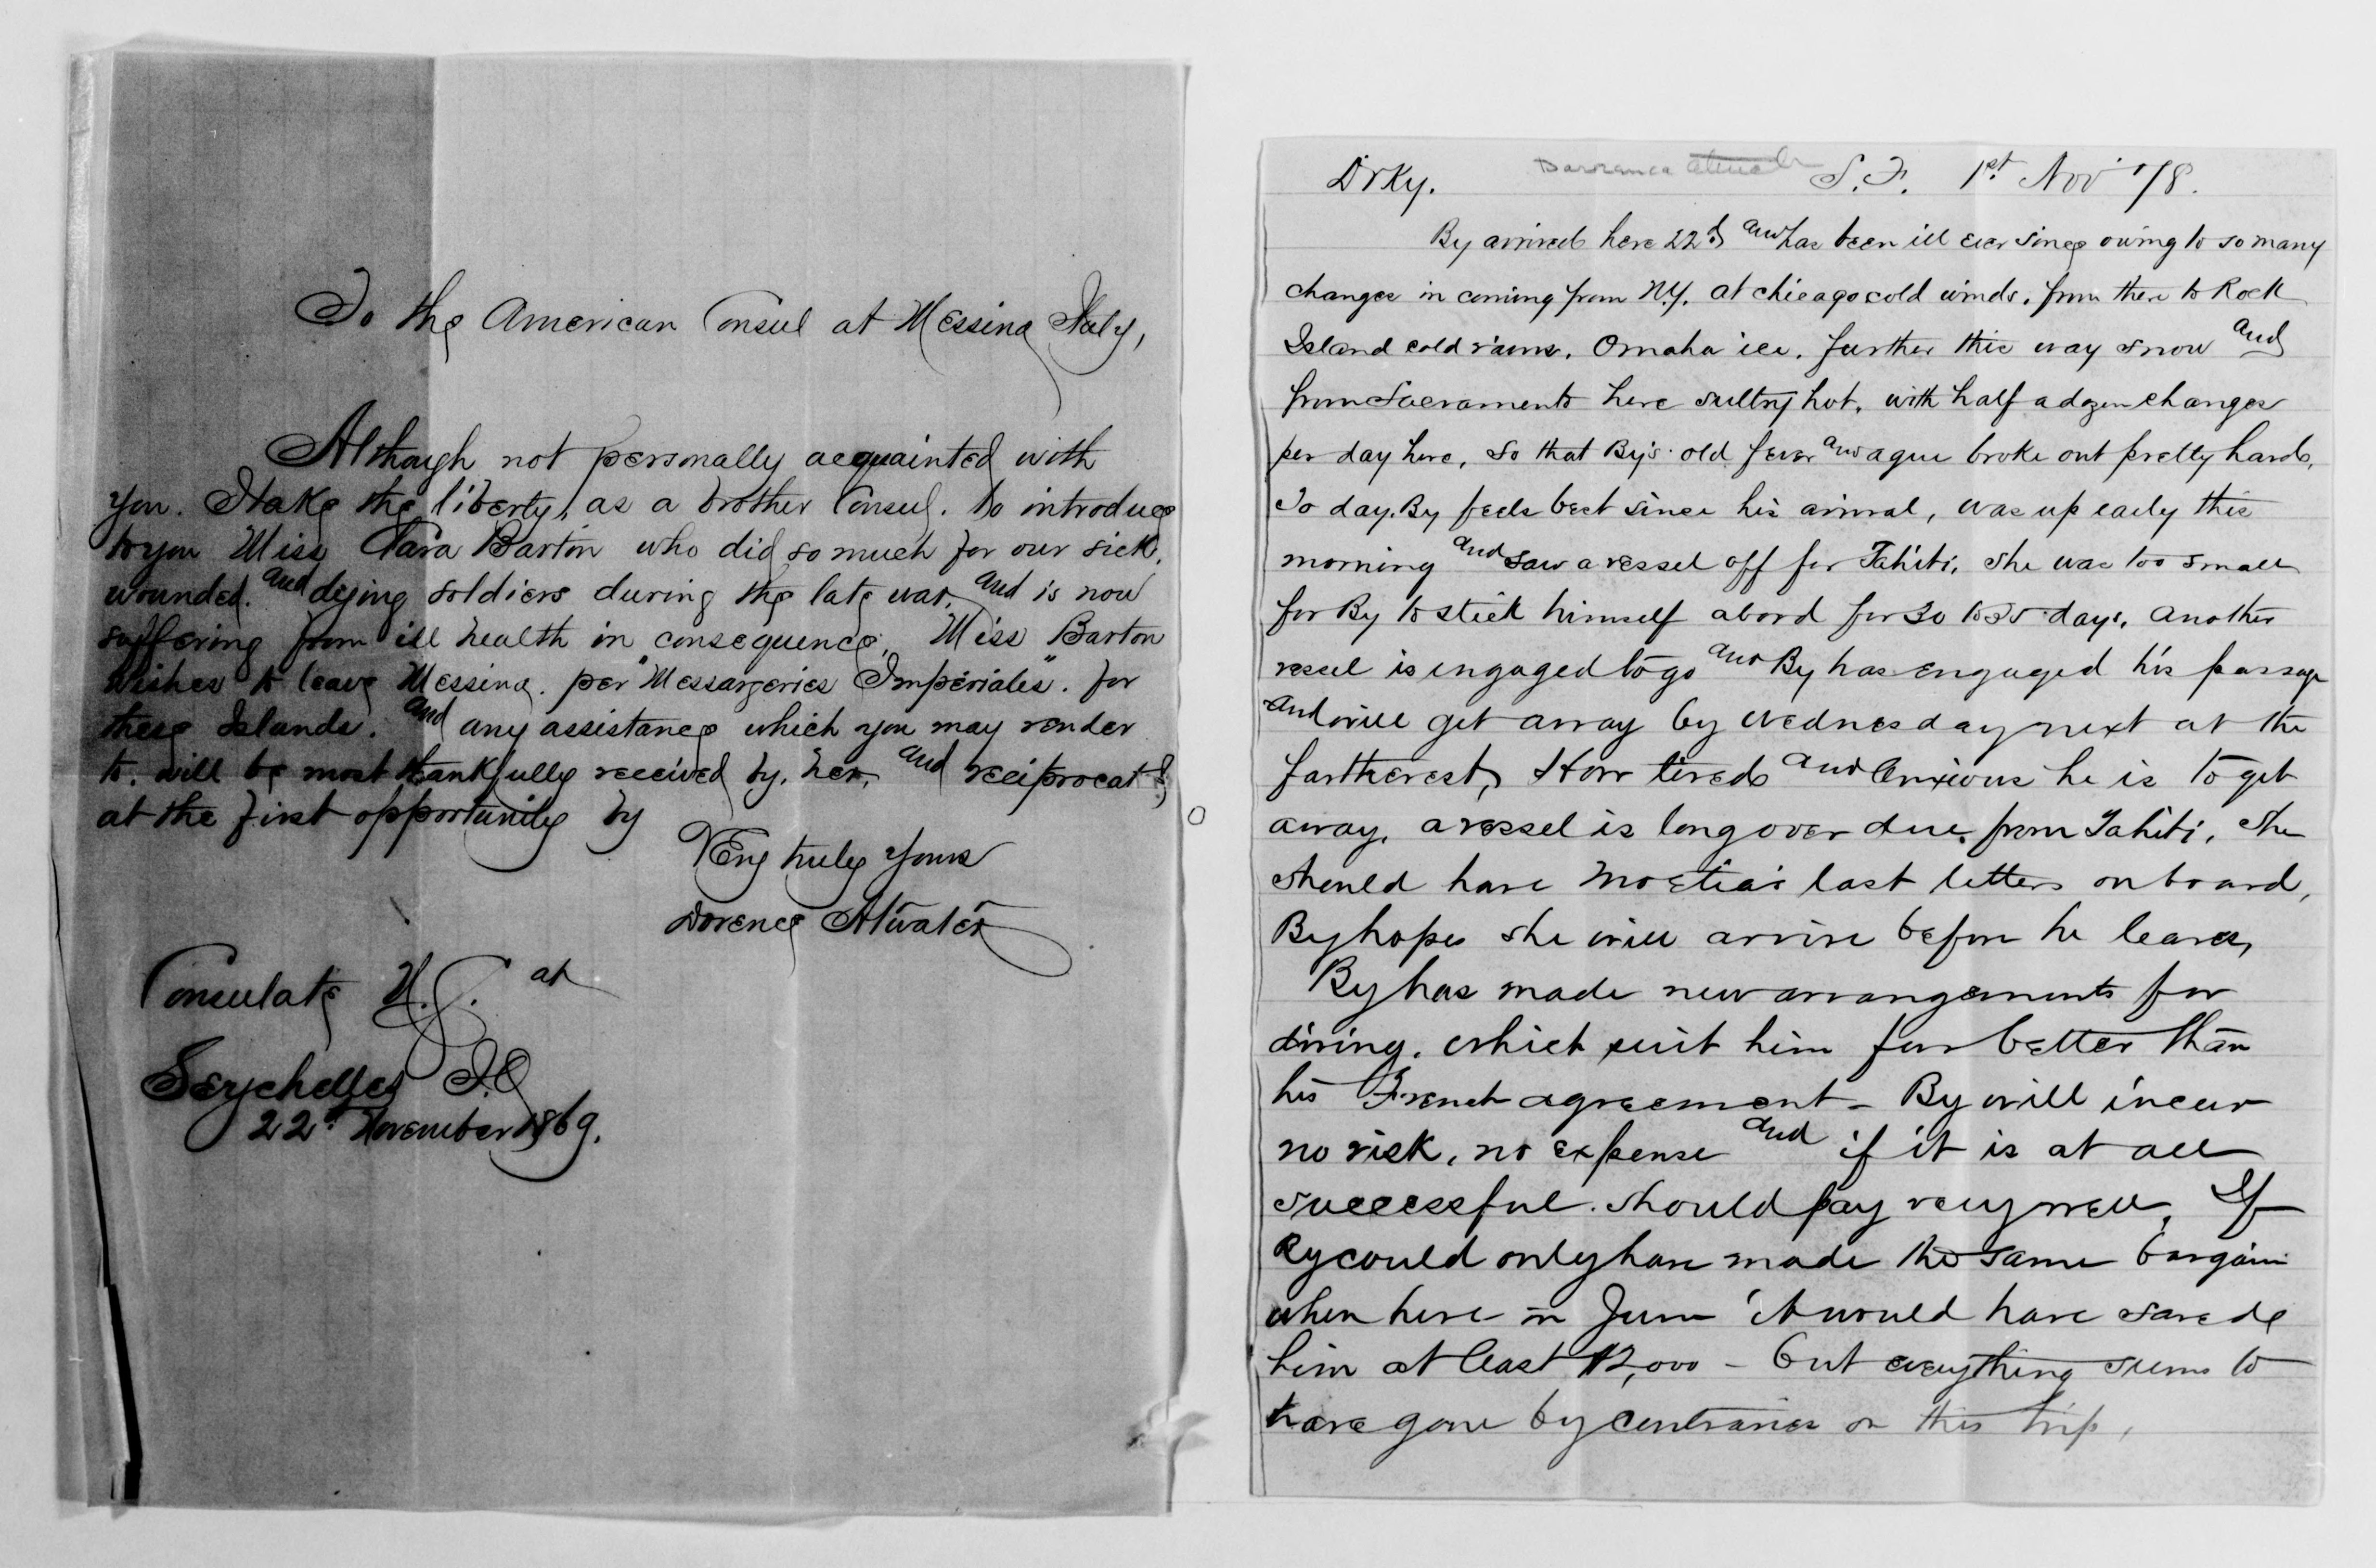 To the American Consul at Messina Italy,
Although not personally acquainted with
you. I take the liberty, as a brother Consul. to introduce
to you Miss Clara Barton who did so much for our sick,
wounded. and dying soldiers during the late war, and is now
suffering from ill health in consequence. Miss Barton
wishes to leave Messina. per "Messargeries Impériales". for
these Islands. and any assistance which you may render
to. will be most thankfully received by. her, and reciprocated
at the first opportunity by
Very truly yours
Dorence Atwater
Consulate U.S. at
Seychelles I.O
22d November 1869.
Drky. S.F. 1st Nov '78.
By arrived here 22d and has been ill ever since owing to so many
changes in coming from N.Y. at chicago cold winds. from there to Rock
Island cold rains. Omaha ice. further this way snow and
from Sacramento here sultry hot. with half a dozen changes
per day here, so that By's old fever and ague broke out pretty hard,
To day. By feels best since his arival, was up early this
morning and saw a vessel off for Tahiti, she was too small
for By to stick himself abord for 30 to 35 days, another
vessel is engaged to go and By has engaged his passage
and will get away by Wednesday next at the
fartherest, How tired and anxious he is to get
away, a vessel is long over due from Tahiti, She
should have Moetia's last letters on board,
By hopes she will arrive before he leaves,
By has made new arrangements for
diving. which suit him far better than
his French agreement - By will incur
no risk, no expense and if it is at all
successful. should pay very well, If
By could only have made the same bargain
when here in June it would have saved
him at least 12,000 - but everything seems to
have gone by contraries on this trip,